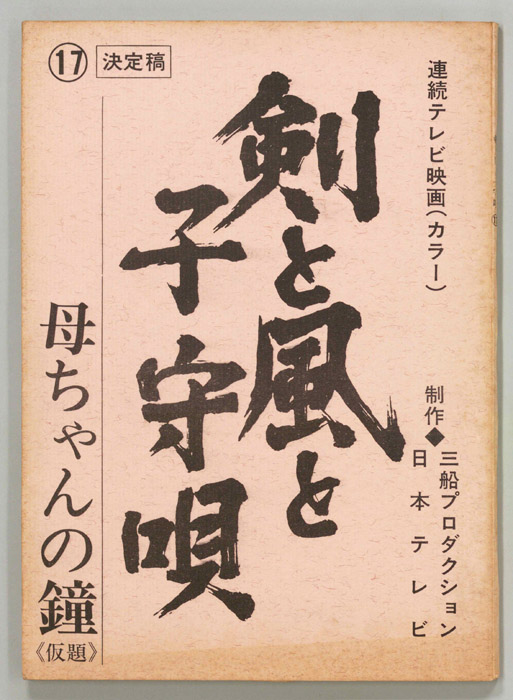 連続テレビ映画(カラー)
制作◆三船プロダクション
日本テレビ
剣と風と
子守唄
⑰ 決定稿
母ちゃんの鐘
《仮題》